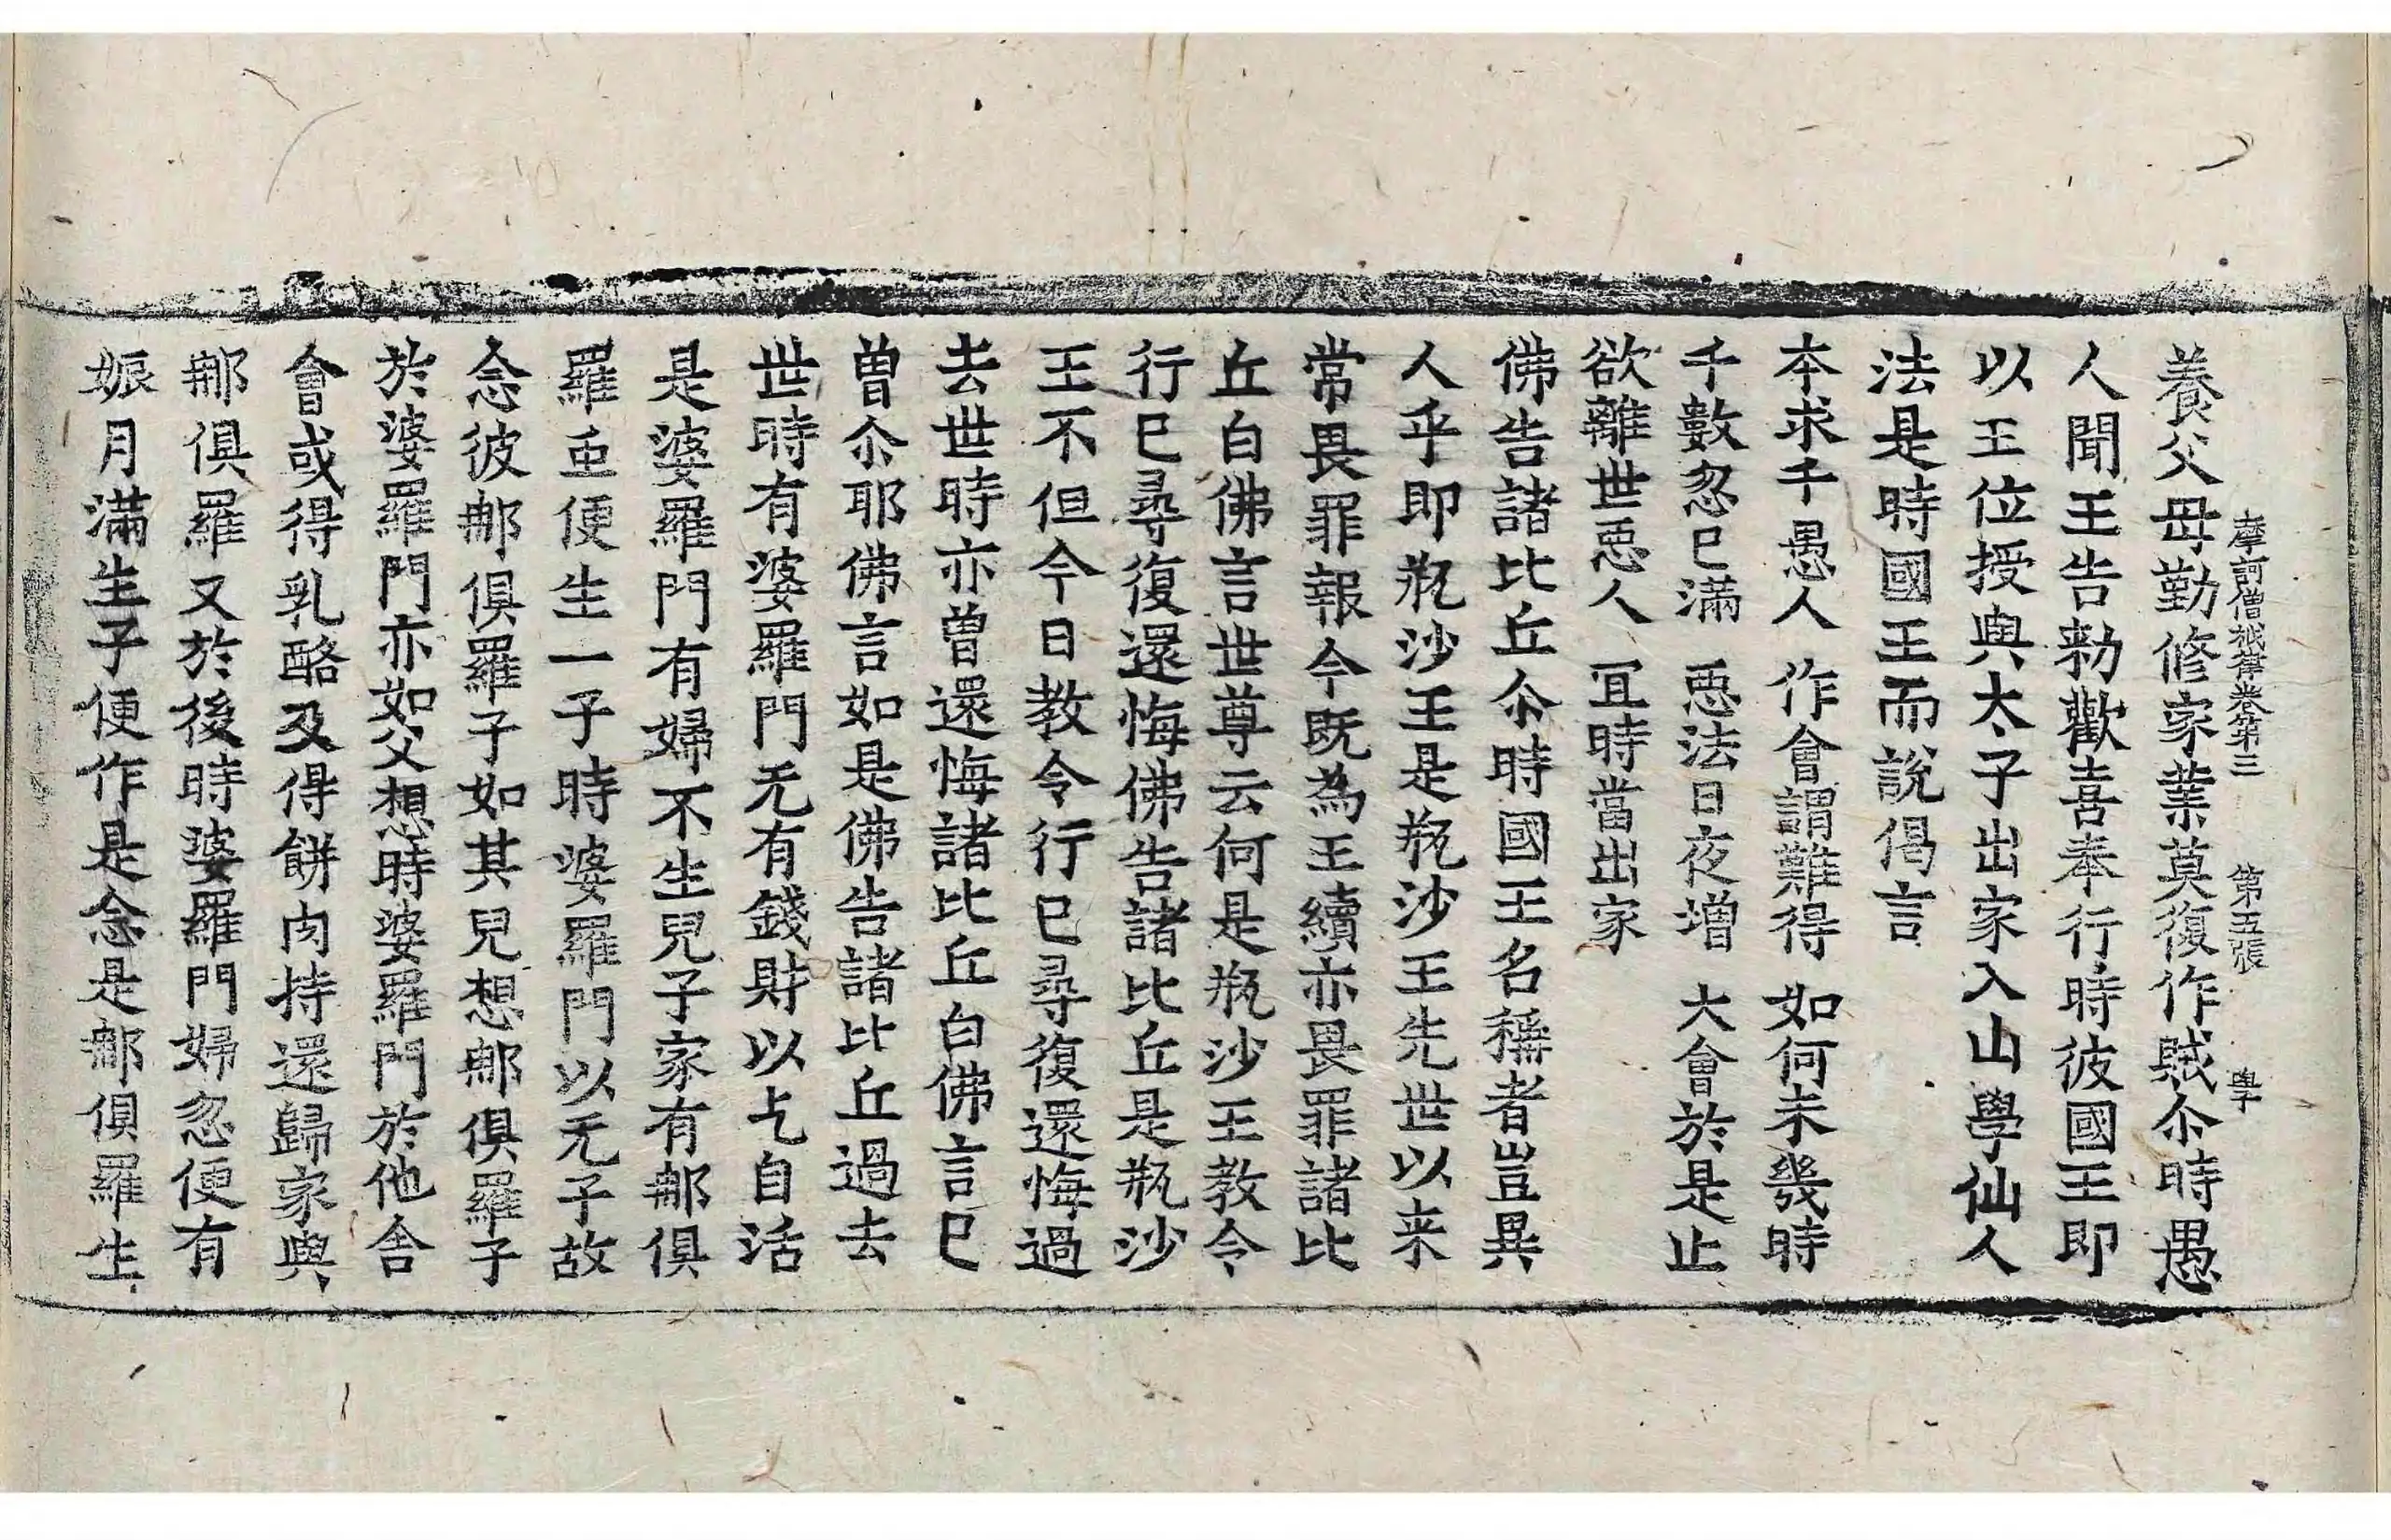 摩訶僧祇律卷第三　第五張　學
養父母勤修家業莫復作賊尒時愚
人聞王告勑歡喜奉行時彼國王即
以王位授與太子出家入山學仙人
法是時國王而說偈言
本求千愚人　作會謂難得　如何未幾時
千數忽已滿　惡法日夜增　大會於是止
欲離世惡人　冝時當出家
佛告諸比丘尒時國王名稱者豈異
人乎即瓶沙王是瓶沙王先世以来
常畏罪報今既為王續亦畏罪諸比
丘白佛言世尊云何是瓶沙王教令
行已尋復還悔佛告諸比丘是瓶沙
王不但今日教令行已尋復還悔過
去世時亦曾還悔諸比丘白佛言已
曾尒耶佛言如是佛告諸比丘過去
世時有婆羅門无有錢財以乞自活
是婆羅門有婦不生兒子家有𨚗俱
羅虫便生一子時婆羅門以无子故
念彼𨚗俱羅子如其兒想𨚗俱羅子
於婆羅門亦如父想時婆羅門於他舍
會或得乳酪及得餅肉持還歸家與
𨚗俱羅又於後時婆羅門婦忽便有
娠月滿生子便作是念是𨚗俱羅生